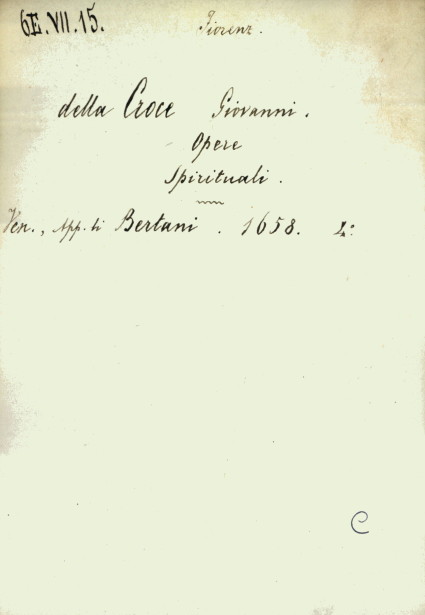 6E.VII.15. Fiorenz.
della Croce Giovanni.
Opere
Spirituali.
Ven., App. li Bertani. 1658. 4°
C